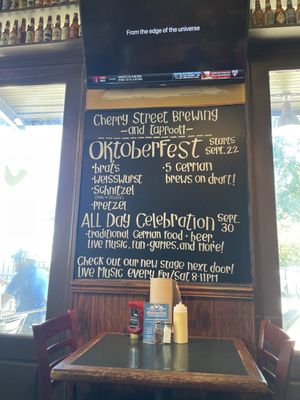 From the edge of the universe
Cherry Street Brewing
and taproom
Oktoberfest Starts Sept. 22
• brats
• Weisswurst
• Schnitzel
• Pretzel
• 5 German
brews on draft!
All Day Celebration Sept. 30
• traditional German food + beer
Live music, fun, games, and more!
Check out our new stage next door!
Live Music every Fri/Sat 8-11PM